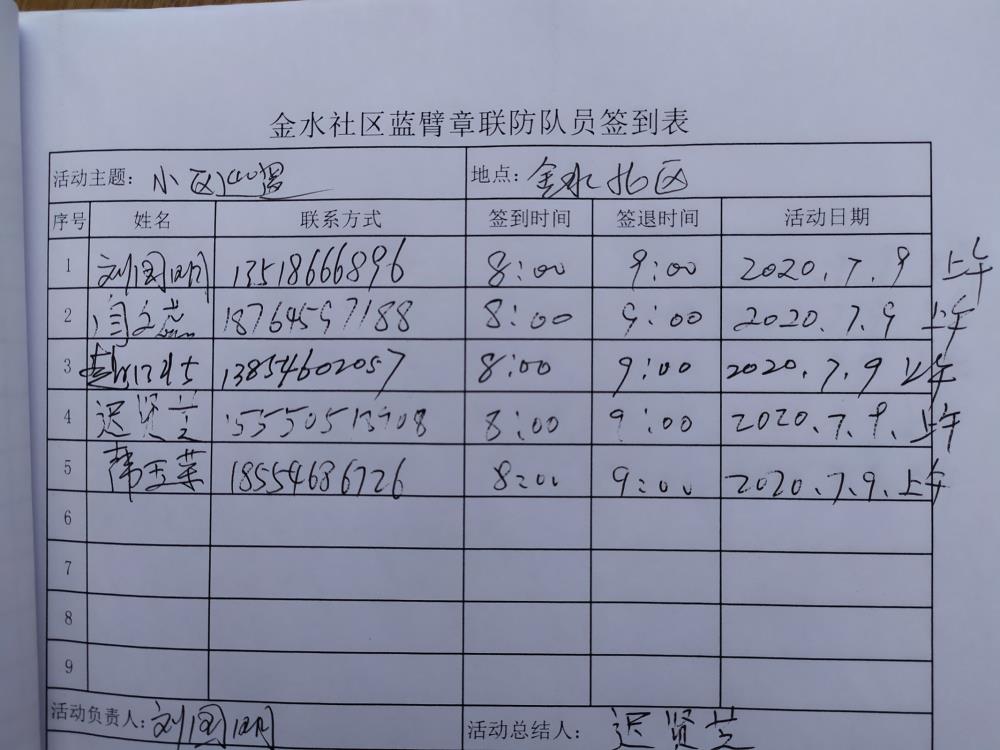 金水社区蓝臂章联防队员签到表
活动主题: 小区 地点: 金水北区
序号 姓名 联系方式 签到时间 签退时间 活动日期
1 刘国明 13518666896 8:00 9:00 2020.7.9 上午
2 闫文 18764597188 8:00 9:00 2020.7.9 上午
3 13854602057 8:00 9:00 2020.7.9 上午
4 迟贤芝 8:00 9:00 2020.7.9. 上午
5 玉荣 18554686726 8:00 9:00 2020.7.9. 上午
6
7
8
9
活动负责人: 刘国明 活动总结人: 迟贤芝